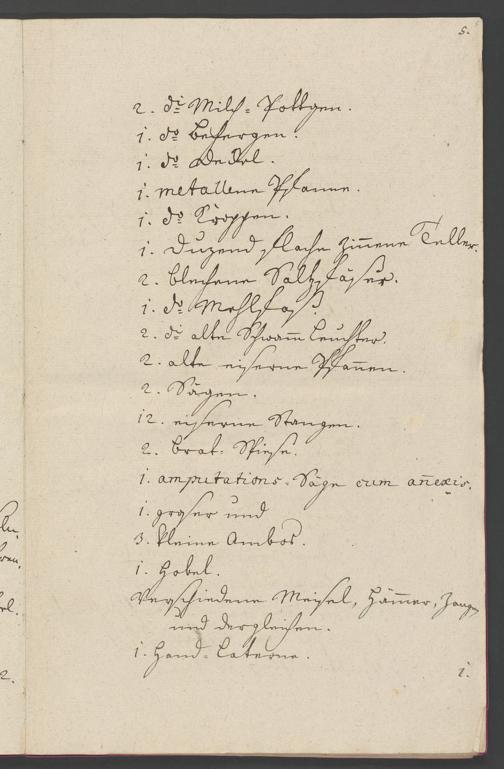 5.
2. di Milch-Pottgen.
1. do Bechergen.
1. do Deckel.
1. metallene Pfanne.
1. do Kroppen.
1. Duzend flache zinnene Teller.
2. blechene Saltzfäser.
1. do Mehlfaß.
2. di alte Schwamm Leuchter.
2. alte eiserne Pfannen.
2. Sägen.
12. eiserne Stangen.
2. Brat-Spiese.
1. amputations-Säge cum annexis.
1. groser und
3. kleine Ambos.
1. Hobel.
Verschiedene Meisel, Hämmer, Zangen
und dergleichen.
1. Hand-Laterne.
1.